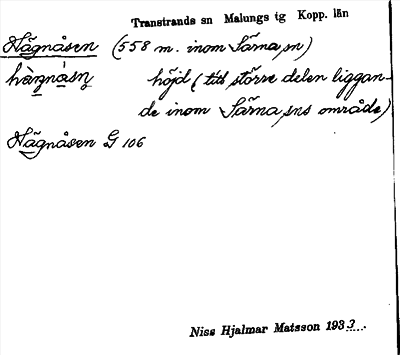 Transtrands sn Malungs tg Kopp. län
Hägnåsen (558 m. inom Särna sn)
hàŋnásn höjd (till större delen liggan-
de inom Särna sns område)
Hägnåsen G 106
Niss Hjalmar Matsson 1933.